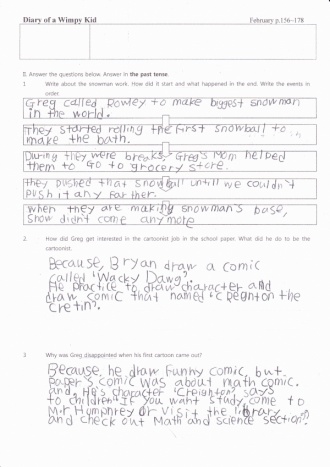 Diary of a Wimpy Kid
February p.156~178
8. Answer the questions below. Answer in the past tense.
1 Write about the snowman work. How did it start and what happened in the end. Write the events in
order.
Greg called Rowley to make biggest snowman
in the world.
They started rolling the first snowball to
make the bath.
During they were breaks, Greg's Mom helped
them to Go to grocery store.
they pushed that snowball until we couldn't
push it any farther.
when they are making snowman's base,
snow didn't come anymore
2. How did Greg get interested in the cartoonist job in the school paper. What did he do to be the
cartoonist.
Because, Bryan draw a comic
called 'Wacky Dawg'.
He practice to draw character and
draw comic that named 'Creighton the
Cretin'.
3 Why was Greg disappointed when his first cartoon came out?
Because, he draw funny comic, but
paper's comic was about math comic.
and, He's character 'Creighton' says
to children "If you want study, come to
Mr Humphrey or Visit the library
and check out Math and science section".